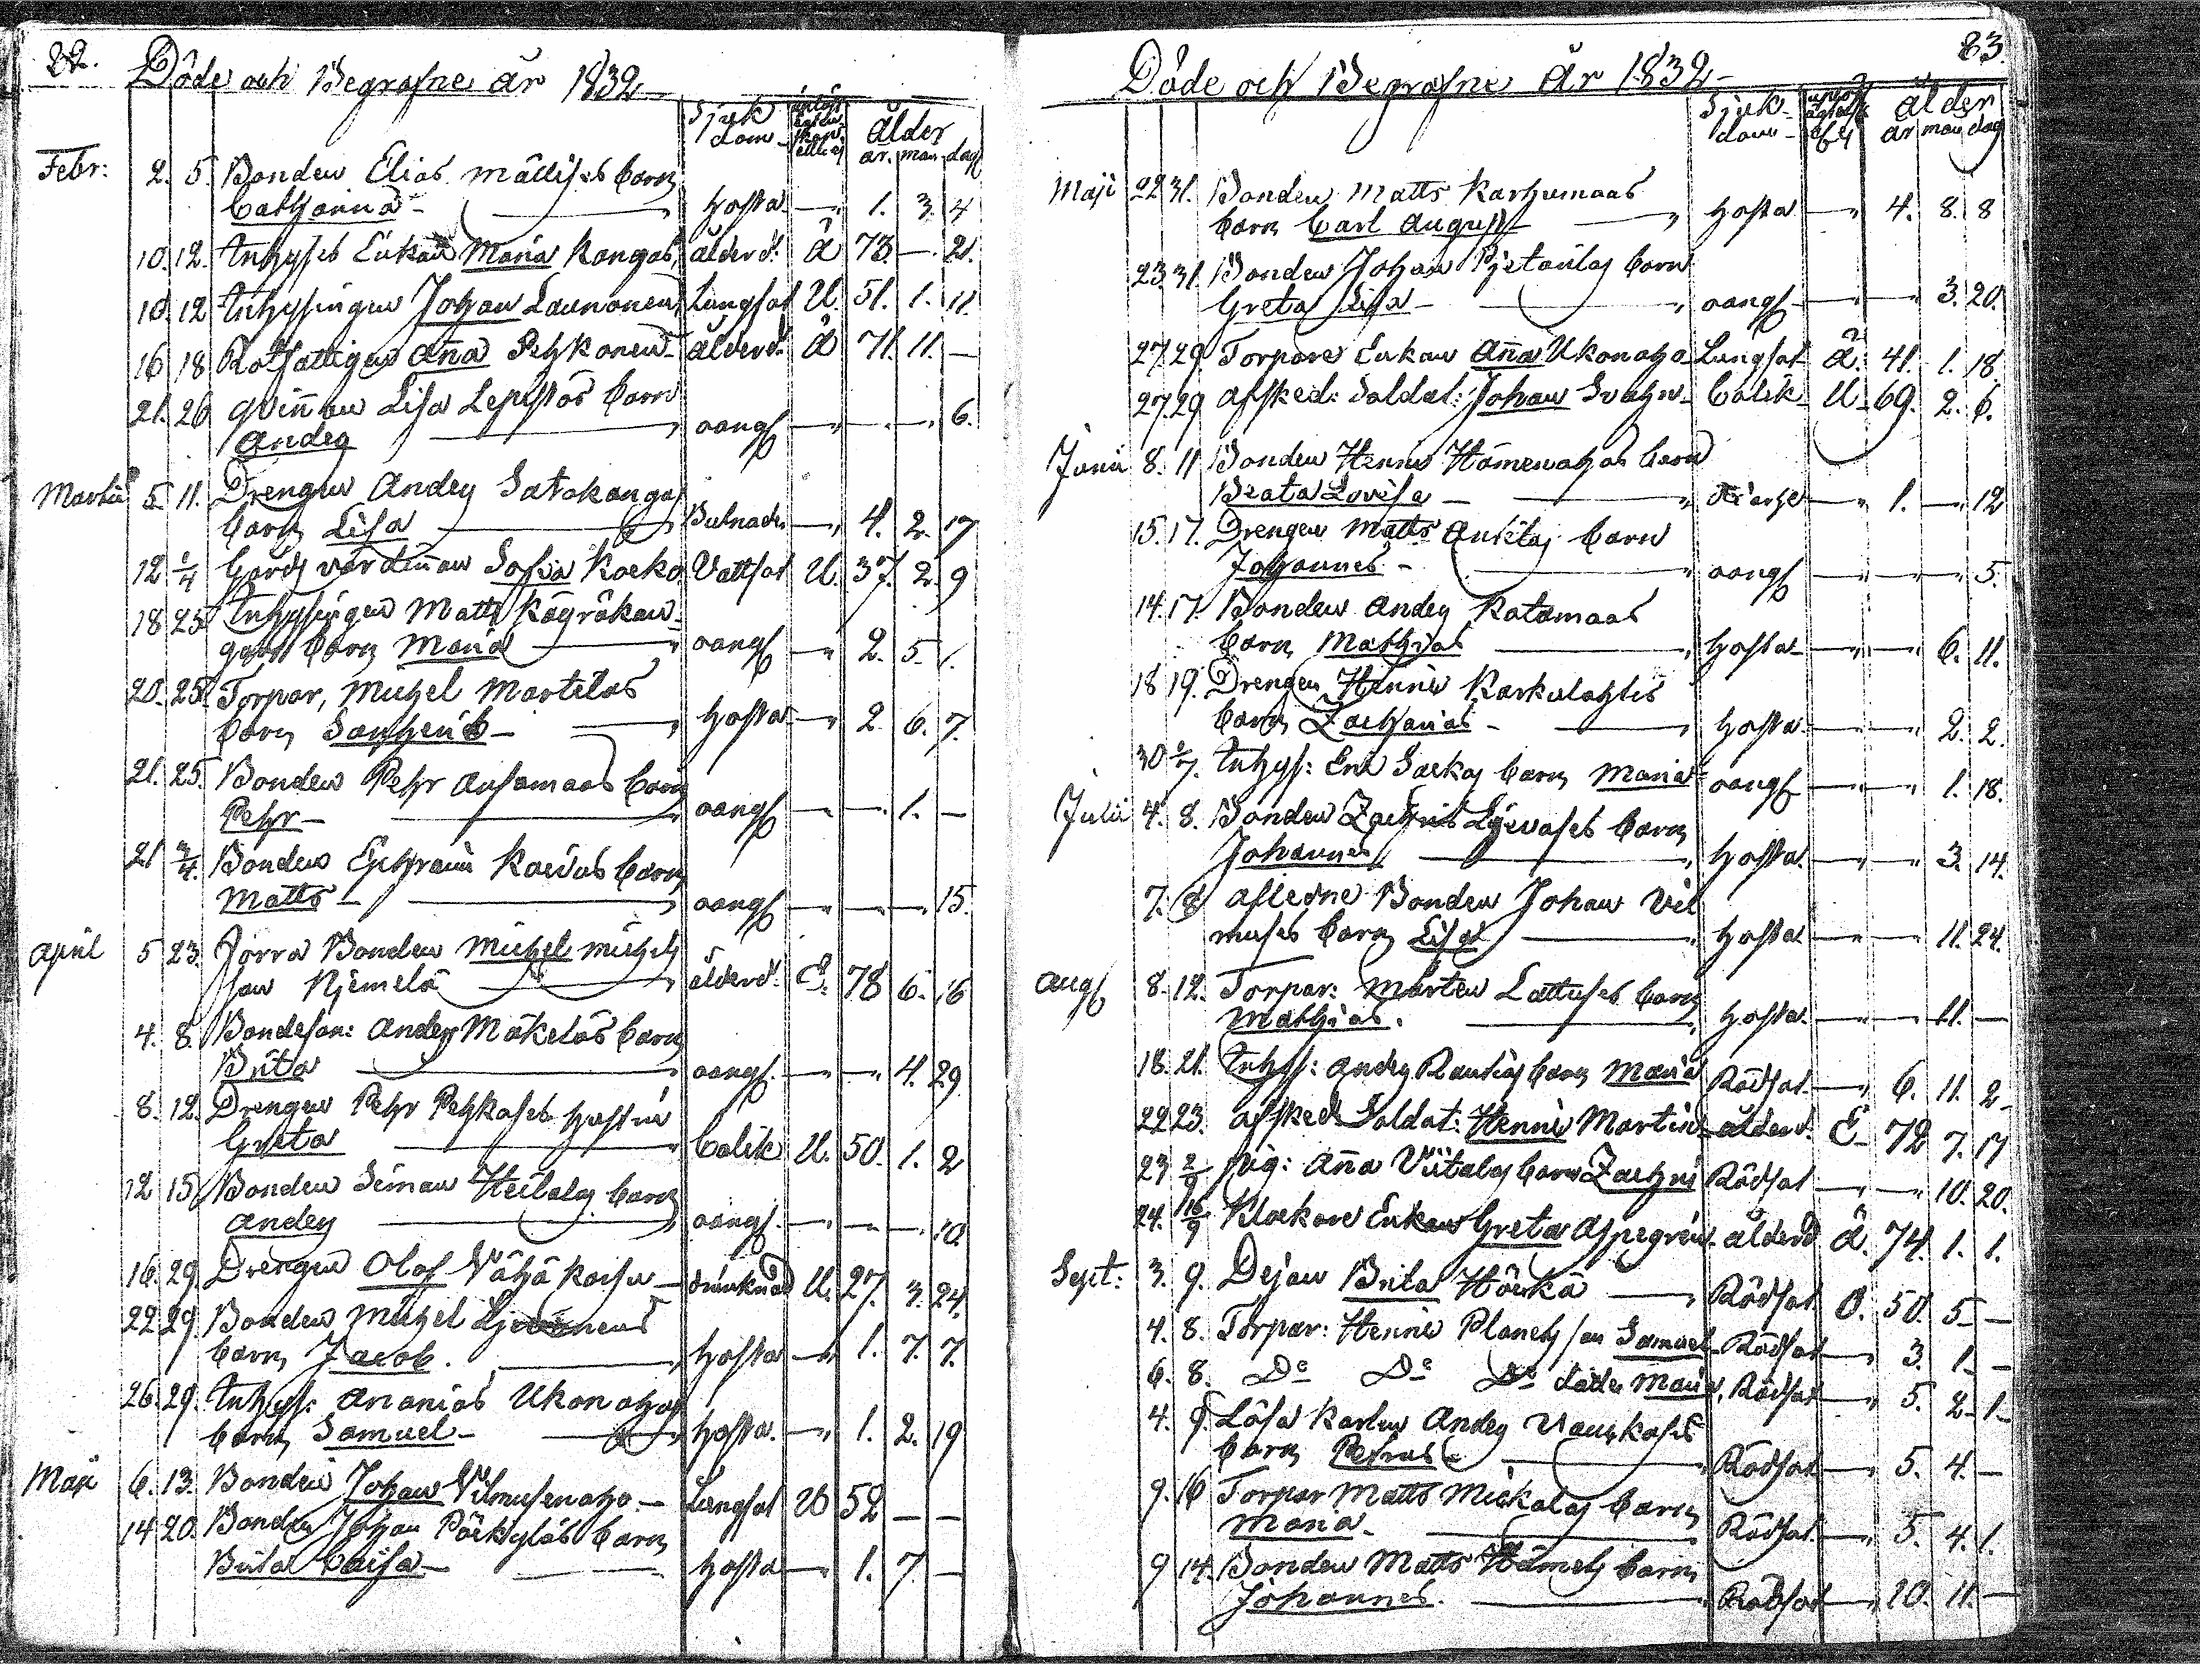 22. Döde och Begrafne år 1832
Sjuk
dom
ålder
år. mån. dag
Febr: 2. 5. Bonden Elias Mättises barn
Catharina hosta 1. 3. 4
10. 12. Inhyses Enkan Maria Kangas, ålderd: Ä 73. — 21.
10. 12 Inhysingen Johan Launonen Lungsot U. 51. 1. 11.
16 18 Rotfattigen Anna Pehkonen ålderd: Ä 71. 11. —
21. 26 Qvinnan Lisa Leplstös barn
Anders oangf 6.
Martii 5 11. Drengen Anders Satokangas
barn Lisa Bulnader 4. 2. 17
12 1/4 Gårds värdinnan Sofia Kocko Vattsot U. 37. 2. 9
18 25 Inhysingen Matts Kögrökan-
gas barn Maria oangf 2. 5. 1.
20. 25. Torpar, Michel Martilas
barn hosta 2 6. 7.
21. 25. Bonden Pehr Ansamaas barn
Pehr oangf 1. —
21 3/4 Bonden Ephraim barn
Matts oangf 15.
April 5 23. Förra Bonden Michel Michels
son Njemelä ålderd: 78 6. 16
4. 8. Bondeson: Anders Mäkeläs barn
Brita oangf. 4. 29
8. 12. Drengen Pehr Pehkoses hustru
Greta Colik U. 50. 1. 2
12 15 Bonden Seman Heikolas barn
Anders oangf. 10.
16. 29 Drengen Olof Vähä drunknad U. 27. 3. 24.
22 29 Bonden Michel
barn Jacob. hosta 1. 7. 7.
26. 29. Inhyss: Ananias Ukonahos
barn Samuel hosta. 1. 2. 19
Maji 6. 13. Bonden Johan Vilmusenaho Lungsot U 52 — —
14 20. Bonden Johan Pöckylös barn
Brita Caisa hosta 1. 7. —
Döde och Begrafne År 1832 83.
Sjuk-
dom
ålder
år mån dag
Maji 22 31. Bonden Matts Karhumaas
barn Carl August hosta 4. 8. 8
23 31. Bonden Johan Pjetarilas barn
Greta Lisa oangf 3. 20.
27. 29 Torpare Enkan Anna Ukonaho Lungsot Ä. 41. 1. 18
27. 29 Afsked: Soldat: Johan Svahn Colik U 69. 2. 6.
Junii 8. 11 Bonden Henric Hämenahos barn
Beata Lovisa 1. — 12
15. 17. Drengen Matts Anttilas barn
Johannes oangf 5.
14. 17. Bonden Anders Katamaas
barn Mathias hosta 6. 11.
18 19. Drengen Henric Karkulahtis
barn Zacharias hosta 2. 2.
30 2/7. Inhys: Eric Sackas barn Maria oangf 1. 18.
Julii 4. 8. Bonden Zachris barn
Johannes hosta. 3. 14.
7. 8 Afledne Bonden Johan Vil
muses barn Lisa hosta 11. 24.
Aug 8. 12. Torpar: Mårten Lattuses barn
Mathias. hosta. 11. —
18. 21. Inhys: Anders Rautios barn Maria Rödsot 6. 11. 2
22 23. Afsked Soldat: Henric Martin ålderd. E 72 7. 17
23 2/9 Pig: Anna Viitalas barn Zachris Rödsot 10. 20.
24. 16/9 Klockare Enkan Greta Aspegrén ålderd Ä. 74. 1. 1.
Sept: 3. 9. Dejan Brita Höckä Rödsot O. 50. 5 —
4. 8. Torpar: Henric Planets son Samuel Rödsot 3. 1. —
6. 8. Do Do Do dotter Maria, Rödsot 5. 2 1
4. 9. Lösa Karlen Anders Vauhkoses
barn Petrus Rödsot 5. 4. —
9. 16 Torpar Matts Mickalas barn
Maria Rödsot. 5. 4. 1.
9 14. Bonden Matts barn
Johannes. Rödsot 10. 11. —